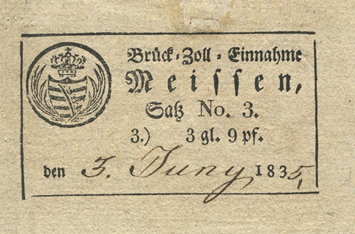 Brück-Zoll-Einnahme
Meissen,
Satz No. 3.
3.) 3 gl. 9 pf.
den 3. Juny 1835,